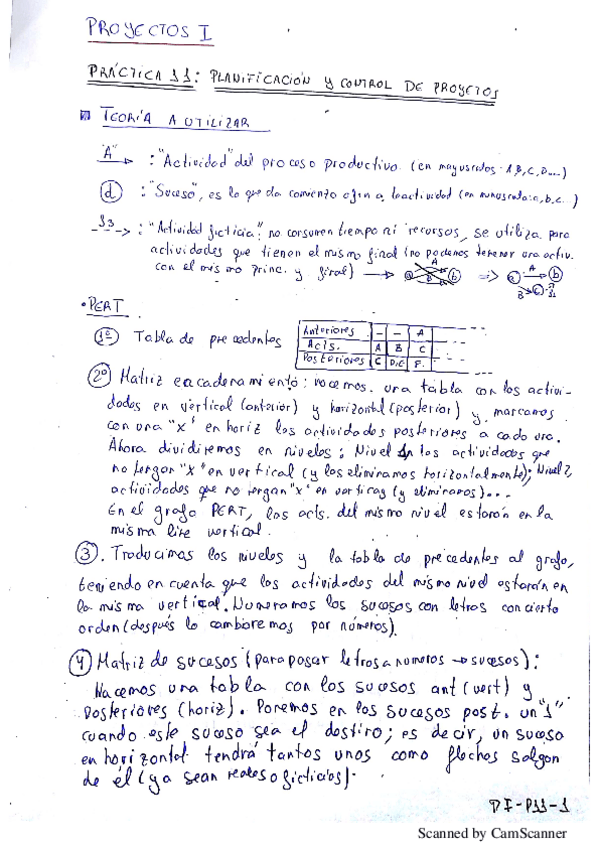 PROYECTOS I
PRÁCTICA 11: PLANIFICACIÓN Y CONTROL DE PROYECTOS
TEORÍA A UTILIZAR
"A" : "Actividad" del proceso productivo. (en mayusculas A,B,C,D...)
d : "Suceso", es lo que da comienzo o fin a la actividad (en minuscula: a,b,c..)
S1 : "Actividad ficticia": no consumen tiempo ni recursos, se utiliza para
actividades que tienen el mismo final (no podemos tener una activ.
con el mismo princ. y final) a A B b => a A b B c S1
• PERT
1º Tabla de precedentes
Anteriores - - A
Acts. A B C
Posteriores C D,E F.
2º Matriz encadenamiento: hacemos una tabla con los activi-
dades en vertical (anterior) y horizontal (posterior) y marcamos
con una "x" en horiz los actividades posteriores a cada una.
Ahora dividiremos en niveles: Nivel 1 los actividades que
no tengan "x" en vertical (y los eliminamos horizontalmente); Nivel 2,
actividades que no tengan "x" en vertical (y eliminamos)...
En el grafo PERT, las acts. del mismo nivel estarán en la
misma line vertical.
3. Traducimos los niveles y la tabla de precedentes al grafo,
teniendo en cuenta que los actividades del mismo nivel estarán en
la misma vertical. Numeramos los sucesos con letras con cierto
orden (después lo cambiaremos por números).
4 Matriz de sucesos (para pasar letras a numeros → sucesos):
Hacemos una tabla con los sucesos ant (vert) y
posteriores (horiz). Ponemos en los sucesos post. un "1"
cuando este suceso sea el destino; es decir, un suceso
en horizontal tendrá tantos unos como flechas salgan
de él (ya sean reales o ficticias).
PI-P11-1
Scanned by CamScanner